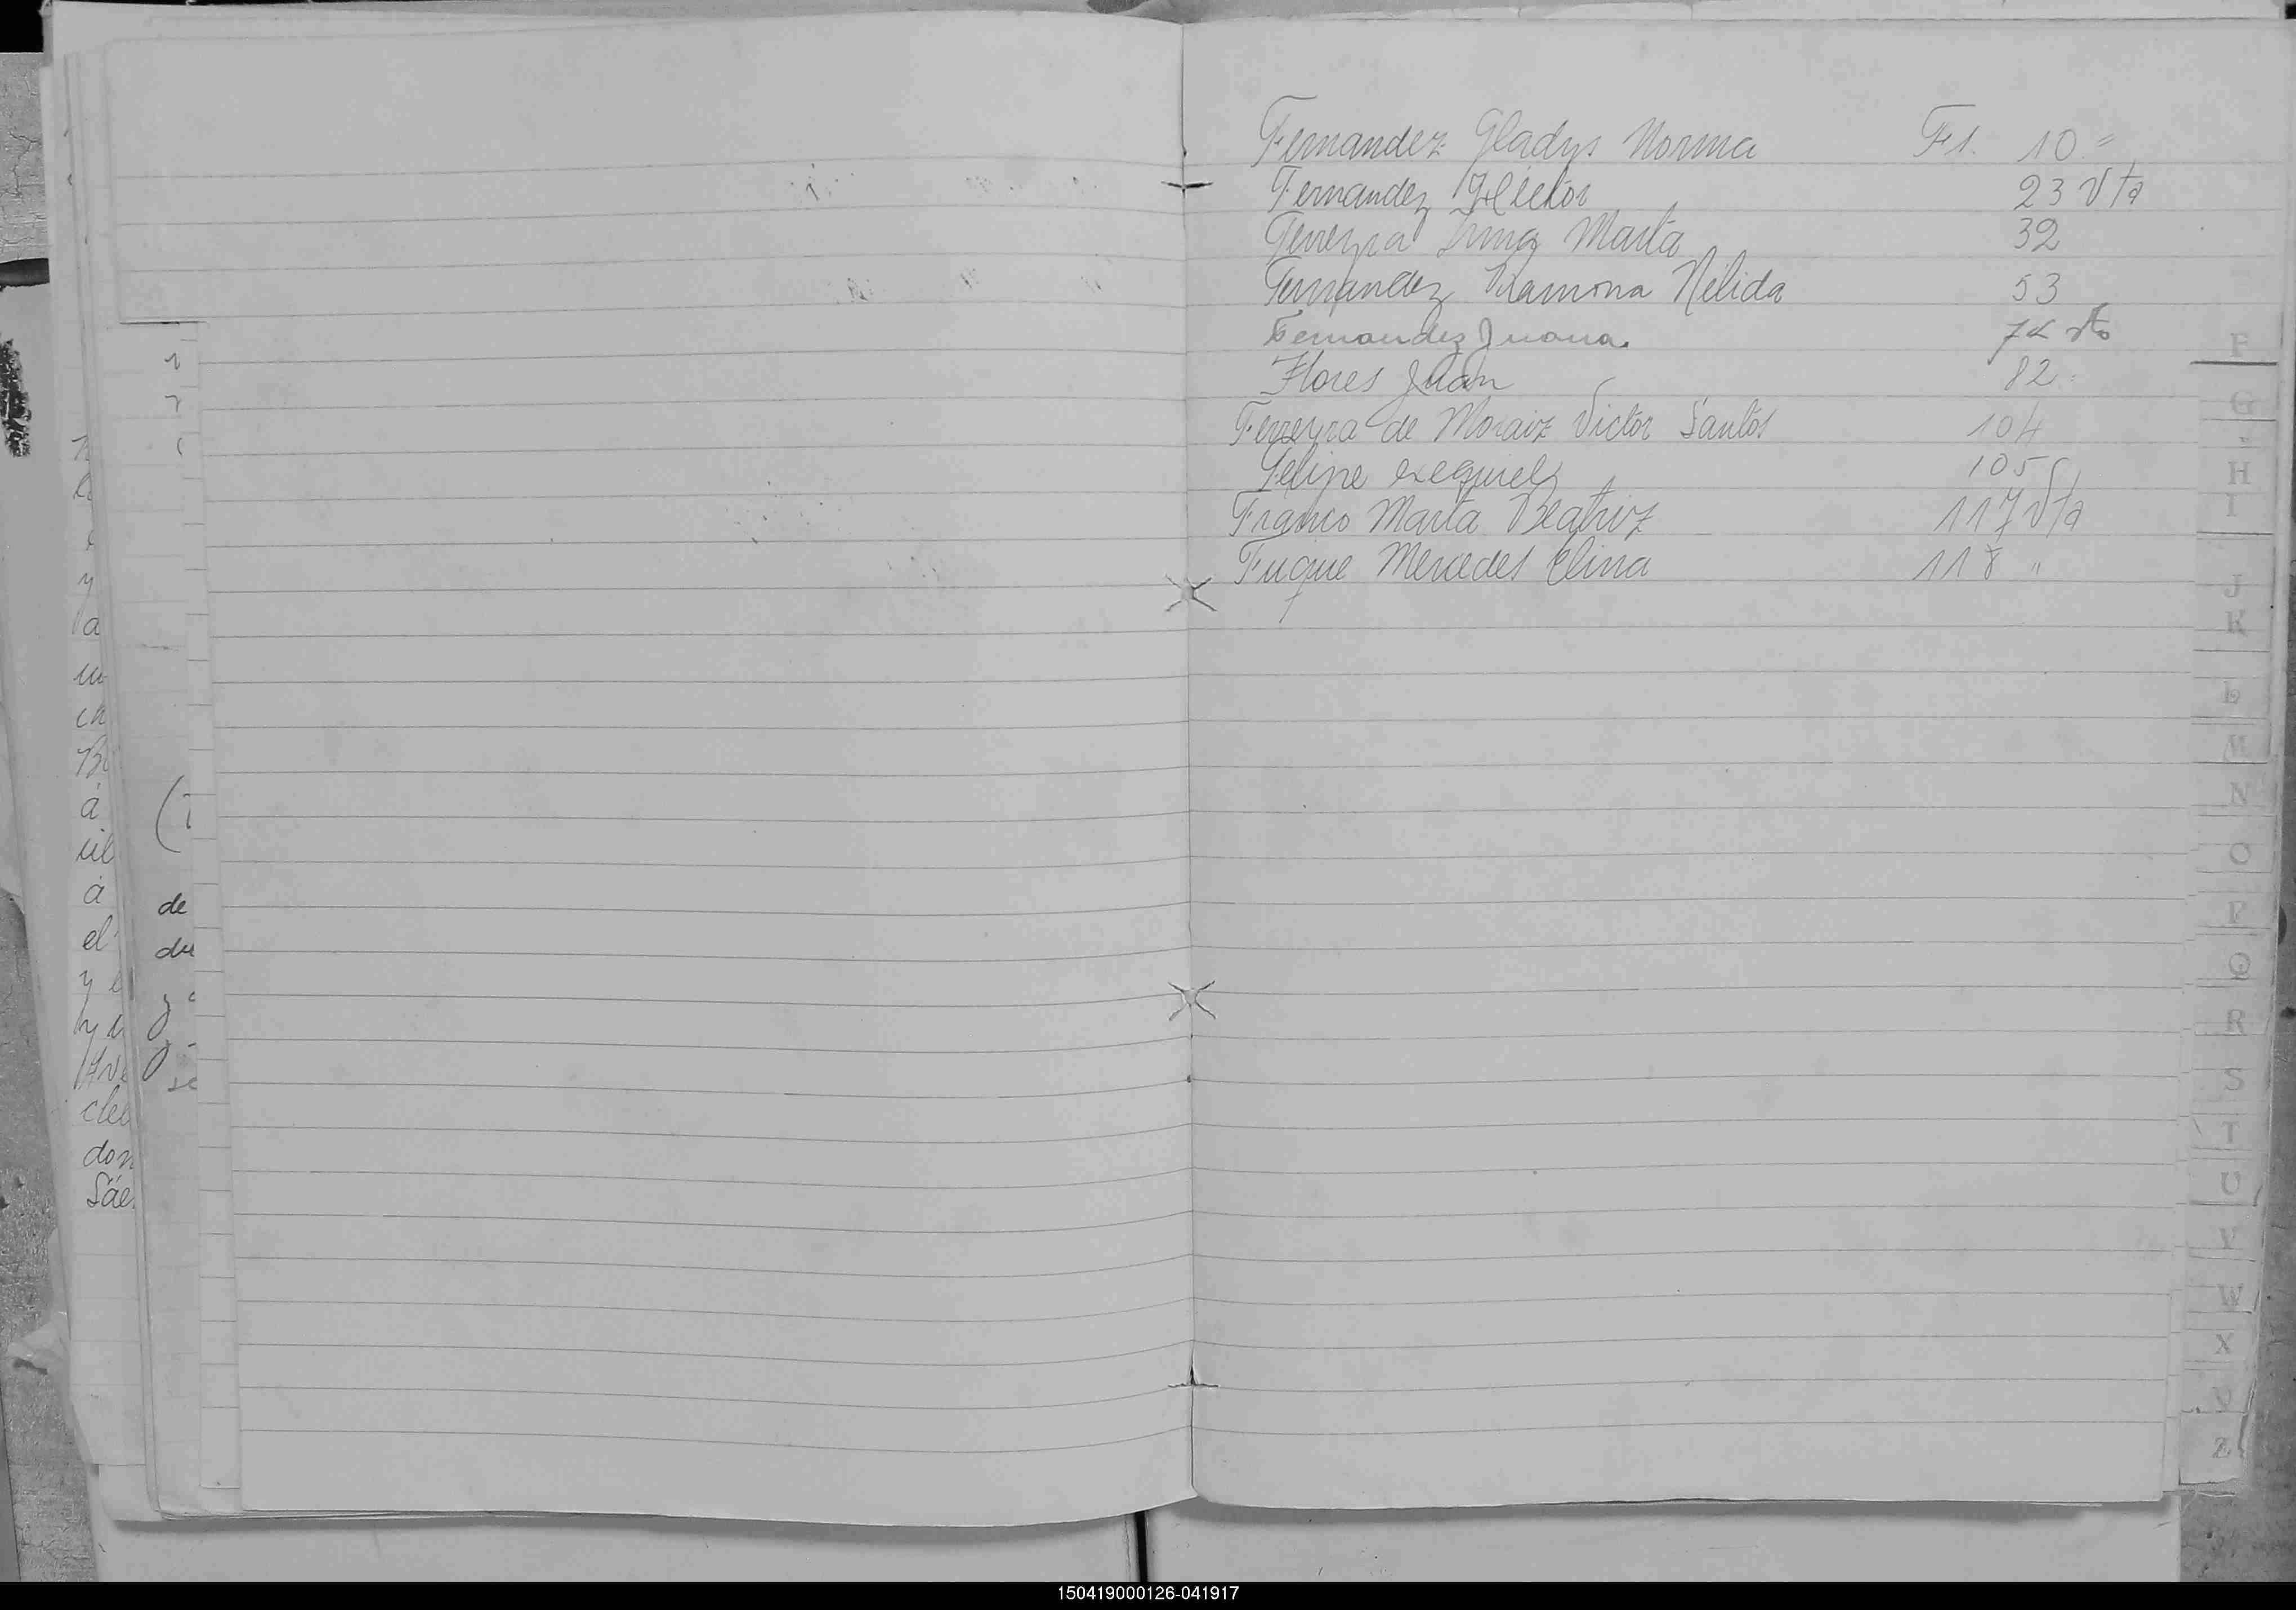 Fernandez Gladys Norma Fs. 10 =
Fernandez Héctor 23 Vta
Ferreyra Irma Marta 32
Fernandez Ramona Nélida 53
Fernandez Juana. 74 vto
Flores Juan 82
Ferreyra de Moraiz Victor Santos 104
Felipe exequiel 105
Franco Marta Beatriz 117 Vta
Fuque Mercedes Elina 118 "
F
G
H
I
J
K
L
M
N
O
P
Q
R
S
T
U
V
W
X
Y
Z
de
du
á
el
don
Sáe
150419000126-041917